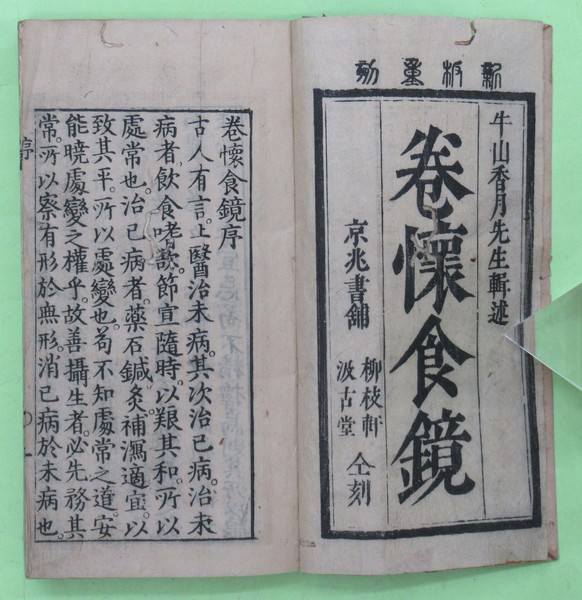 新板重刻
牛山香月先生輯述
卷懷食鏡
京兆書舖
柳枝軒
汲古堂
仝刻
卷懷食鏡序
古人有言。上醫治未病。其次治已病。治未
病者。飲食嗜歃。節宣隨時。以艱其和。所以
處常也。治已病者。藥石鍼灸。補瀉適宜。以
致其平。所以處變也。苟不知處常之道。安
能曉處變之權乎。故善攝生者。必先務其
常。所以察有形於無形。消已病於未病也。
序
一